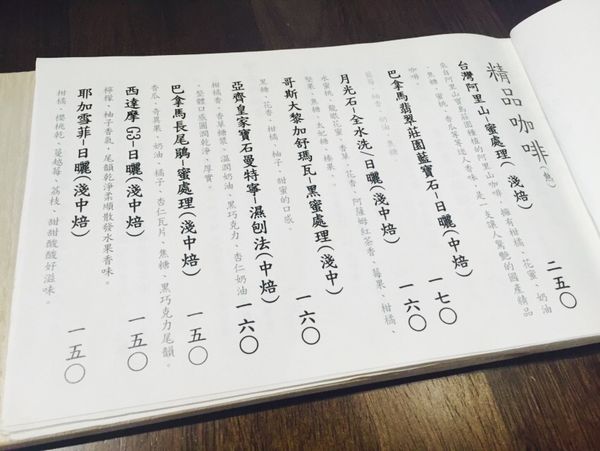 精品咖啡(熱)
台灣阿里山-蜜處理(淺焙) 二五〇
來自阿里山寶馬莊園種植的阿里山咖啡,擁有柑橘、花蜜、奶油
、焦糖、蜜桃、香瓜等等迷人香味,是一支讓人驚艷的國產精品
咖啡。
巴拿馬翡翠莊園藍寶石-日曬(淺中焙) 一七〇
藍莓、柚香、奶油、焦糖
月光石-全水洗/日曬(淺中焙) 一六〇
水蜜桃、龍眼花蜜、香草、花香、阿薩姆紅茶香、莓果、柑橘、
堅果、焦糖、太妃糖、榛果。
哥斯大黎加舒瑪瓦-黑蜜處理(淺中) 一六〇
黑糖、花香、柑橘、柚子、甜蜜的口感。
亞齊皇家寶石曼特寧-濕刨法(中焙) 一六〇
柑橘香、香草糖漿、溫潤奶油、黑巧克力、杏仁奶油
、整體口感圓潤乾淨、厚實。
巴拿馬長尾鵑-蜜處理(淺中焙) 一五〇
香瓜、奇異果、奶油、橘子、杏仁瓦片、焦糖、黑巧克力尾韻。
西達摩G3-日曬(淺中焙) 一五〇
檸檬、柚子香氣,尾韻乾淨柔順散發水果香味。
耶加雪菲-日曬(淺中焙) 一五〇
柑橘、櫻桃乾、蔓越莓、荔枝、甜甜酸酸好滋味。